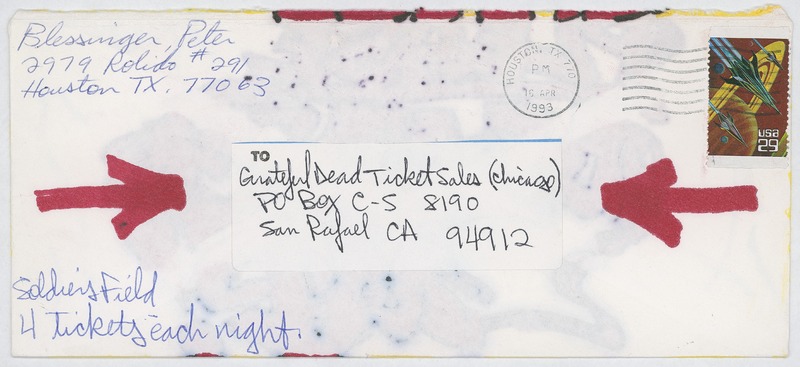 Blessinger, Peter
2979 Rolido # 291
Houston TX. 77063
HOUSTON, TX 770
PM
16 APR
1993
USA
29
TO
Grateful Dead Ticket Sales (Chicago)
PO Box C-S 8190
San Rafael CA 94912
Soldiers Field
4 Tickets each night.